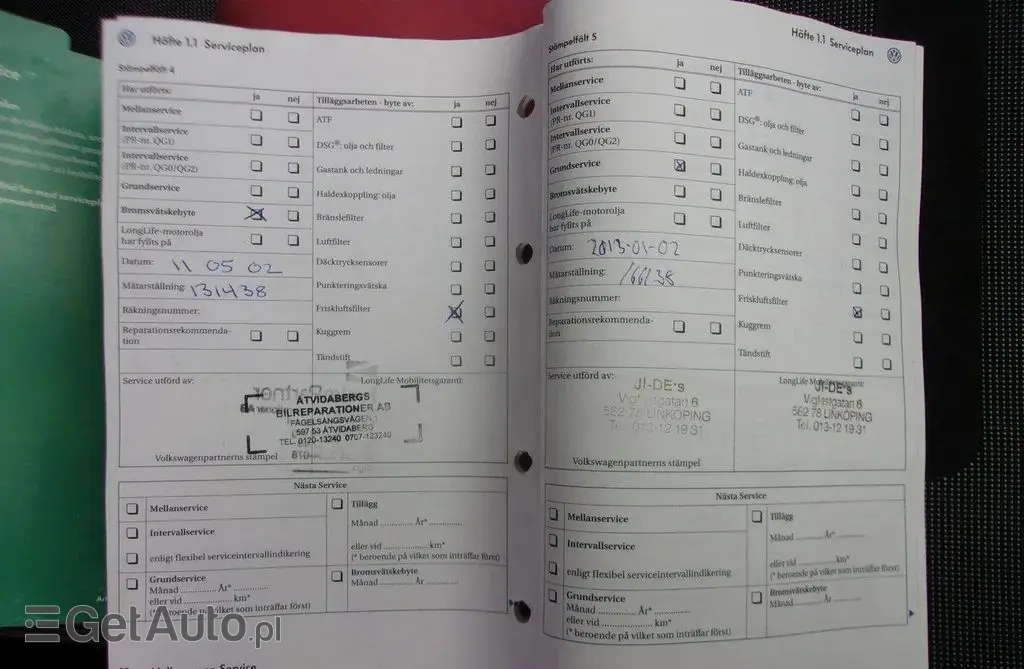 Häfte 1.1 Serviceplan
Stämpelfält 4
Har utförts:
ja nej
Mellanservice
Intervallservice
(PR-nr. QG1)
Intervallservice
(PR-nr. QG0/QG2)
Grundservice
Bromsvätskebyte
LongLife-motorolja
har fyllts på
Datum: 11 05 02
Mätarställning: 131438
Räkningsnummer:
Reparationsrekommenda-
tion
Tilläggsarbeten - byte av:
ja nej
ATF
DSG®: olja och filter
Gastank och ledningar
Haldexkoppling: olja
Bränslefilter
Luftfilter
Däcktrycksensorer
Punkteringsvätska
Friskluftsfilter
Kuggrem
Tändstift
Service utförd av:
LongLife Mobilitetsgaranti:
ÅTVIDABERGS
BILREPARATIONER AB
FÅGELSÅNGSVÄGEN 1
597 53 ÅTVIDABERG
TEL. 0120-13240 0707-123240
Volkswagenpartnerns stämpel
Nästa Service
Mellanservice
Intervallservice
enligt flexibel serviceintervallindikering
Grundservice
Månad År*
eller vid km*
(* beroende på vilket som inträffar först)
Tillägg
Månad År*
eller vid km*
(* beroende på vilket som inträffar först)
Bromsvätskebyte
Månad År
Häfte 1.1 Serviceplan
Stämpelfält 5
Har utförts:
ja nej
Mellanservice
Intervallservice
(PR-nr. QG1)
Intervallservice
(PR-nr. QG0/QG2)
Grundservice
Bromsvätskebyte
LongLife-motorolja
har fyllts på
Datum: 2013-01-02
Mätarställning: 166138
Räkningsnummer:
Reparationsrekommenda-
tion
Tilläggsarbeten - byte av:
ja nej
ATF
DSG®: olja och filter
Gastank och ledningar
Haldexkoppling: olja
Bränslefilter
Luftfilter
Däcktrycksensorer
Punkteringsvätska
Friskluftsfilter
Kuggrem
Tändstift
Service utförd av:
JI-DE's
Vigfastgatan 6
582 78 LINKÖPING
Tel. 013-12 19 31
LongLife Mobilitetsgaranti:
JI-DE's
Vigfastgatan 6
582 78 LINKÖPING
Tel. 013-12 19 31
Volkswagenpartnerns stämpel
Nästa Service
Mellanservice
Intervallservice
enligt flexibel serviceintervallindikering
Grundservice
Månad År*
eller vid km*
(* beroende på vilket som inträffar först)
Tillägg
Månad År*
eller vid km*
(* beroende på vilket som inträffar först)
Bromsvätskebyte
Månad År
GetAuto.pl